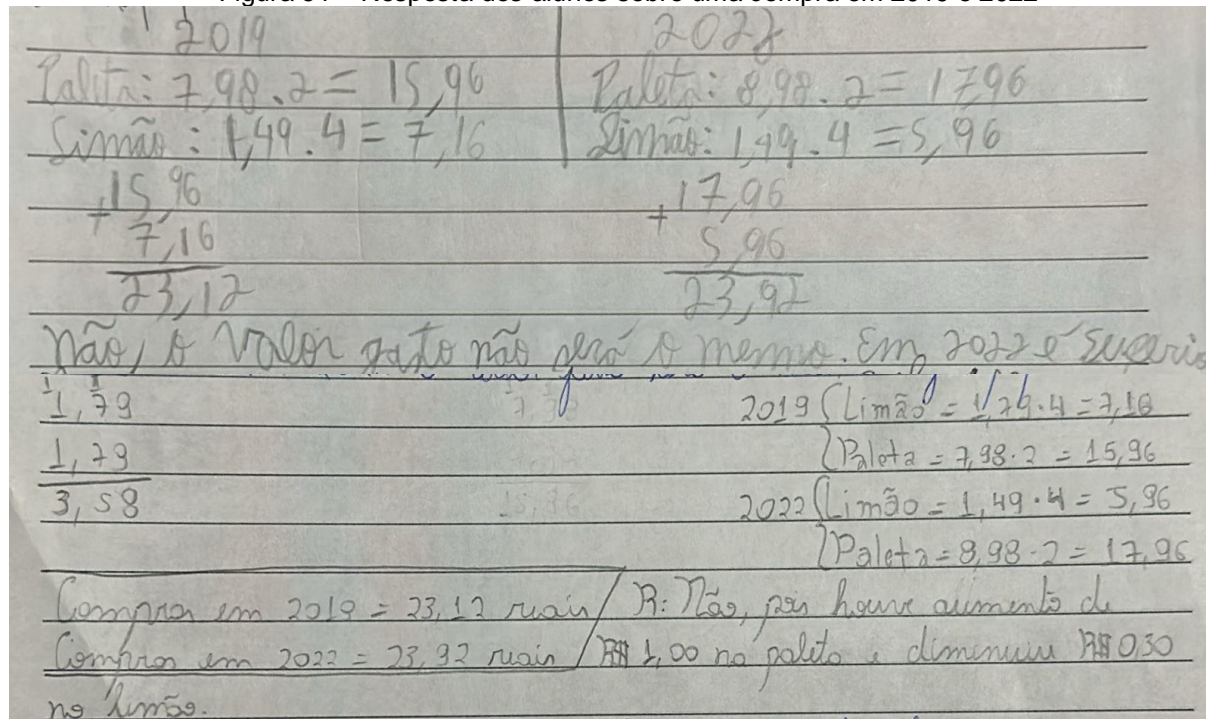 2019
Paleta: 7,98.2= 15,96
Limão: 1,49.4= 7,16
+15,96
7,16
23,12
2022
Paleta: 8,98.2= 17,96
Limão: 1,49.4=5,96
+17,96
5,96
23,92
Não, o valor gato não será o mesmo. Em 2022 é
1,79
1,79
3,58
2019 {Limão = 1,79.4=7,16
{Paleta = 7,98.2 = 15,96
2022 {Limão = 1,49.4 = 5,96
{Paleta = 8,98.2 = 17,96
Compras em 2019 = 23,12 reais / R: Não, pois houve aumento de
Compras em 2022 = 23,92 reais / R$ 1,00 na paleta e diminuiu R$ 0,30
no limão.